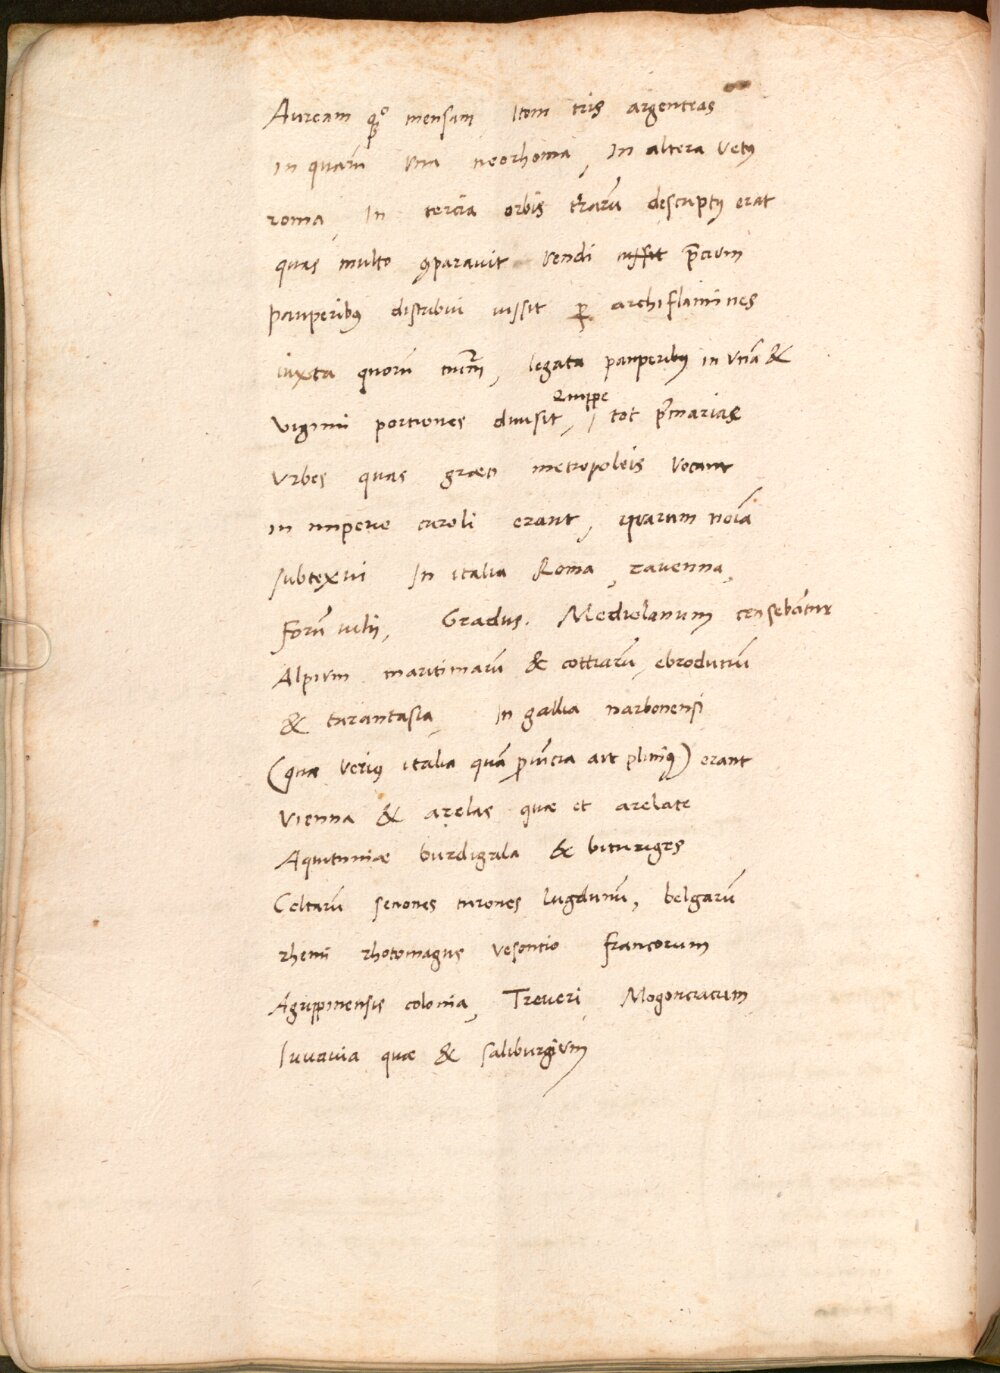 Auream qȝ° mensam Item tris argenteas
In quarū una neorhoma, In altera vetꝰ
roma, In tercia orbis t̄rarū descriptꝰ erat
quas multo ꝯparavit vendi iussit p̄cium
pauperibꝰ distribui iussit ꝑ archiflamines
iuxta quorū num̄, legata pauperibꝰ in unā &
viginti portiones diuisit, Quippe tot p̄marias
urbes quas græci metropoleis vocant
in imperio caroli erant, quarum noīa
subtexui In italia Roma, ravenna,
forū iulii, Gradus. Mediolanum censebātur
Alpium maritimarū & cottiarū, ebrodunū
& tarantasia, In gallia narbonensi
(quæ verius italia quā ꝓvīncia aīt pliniꝰ) erant
Vienna & arelas quæ et arelate
Aquitaniæ burdigala & bituriges
Celtarū senones turones lugdunū, belgarū
rhemi rhotomagus vesontio francorum
Agrippinensis colonia, Treveri, Mogonciacum
Iuvavia quæ & saliburgium